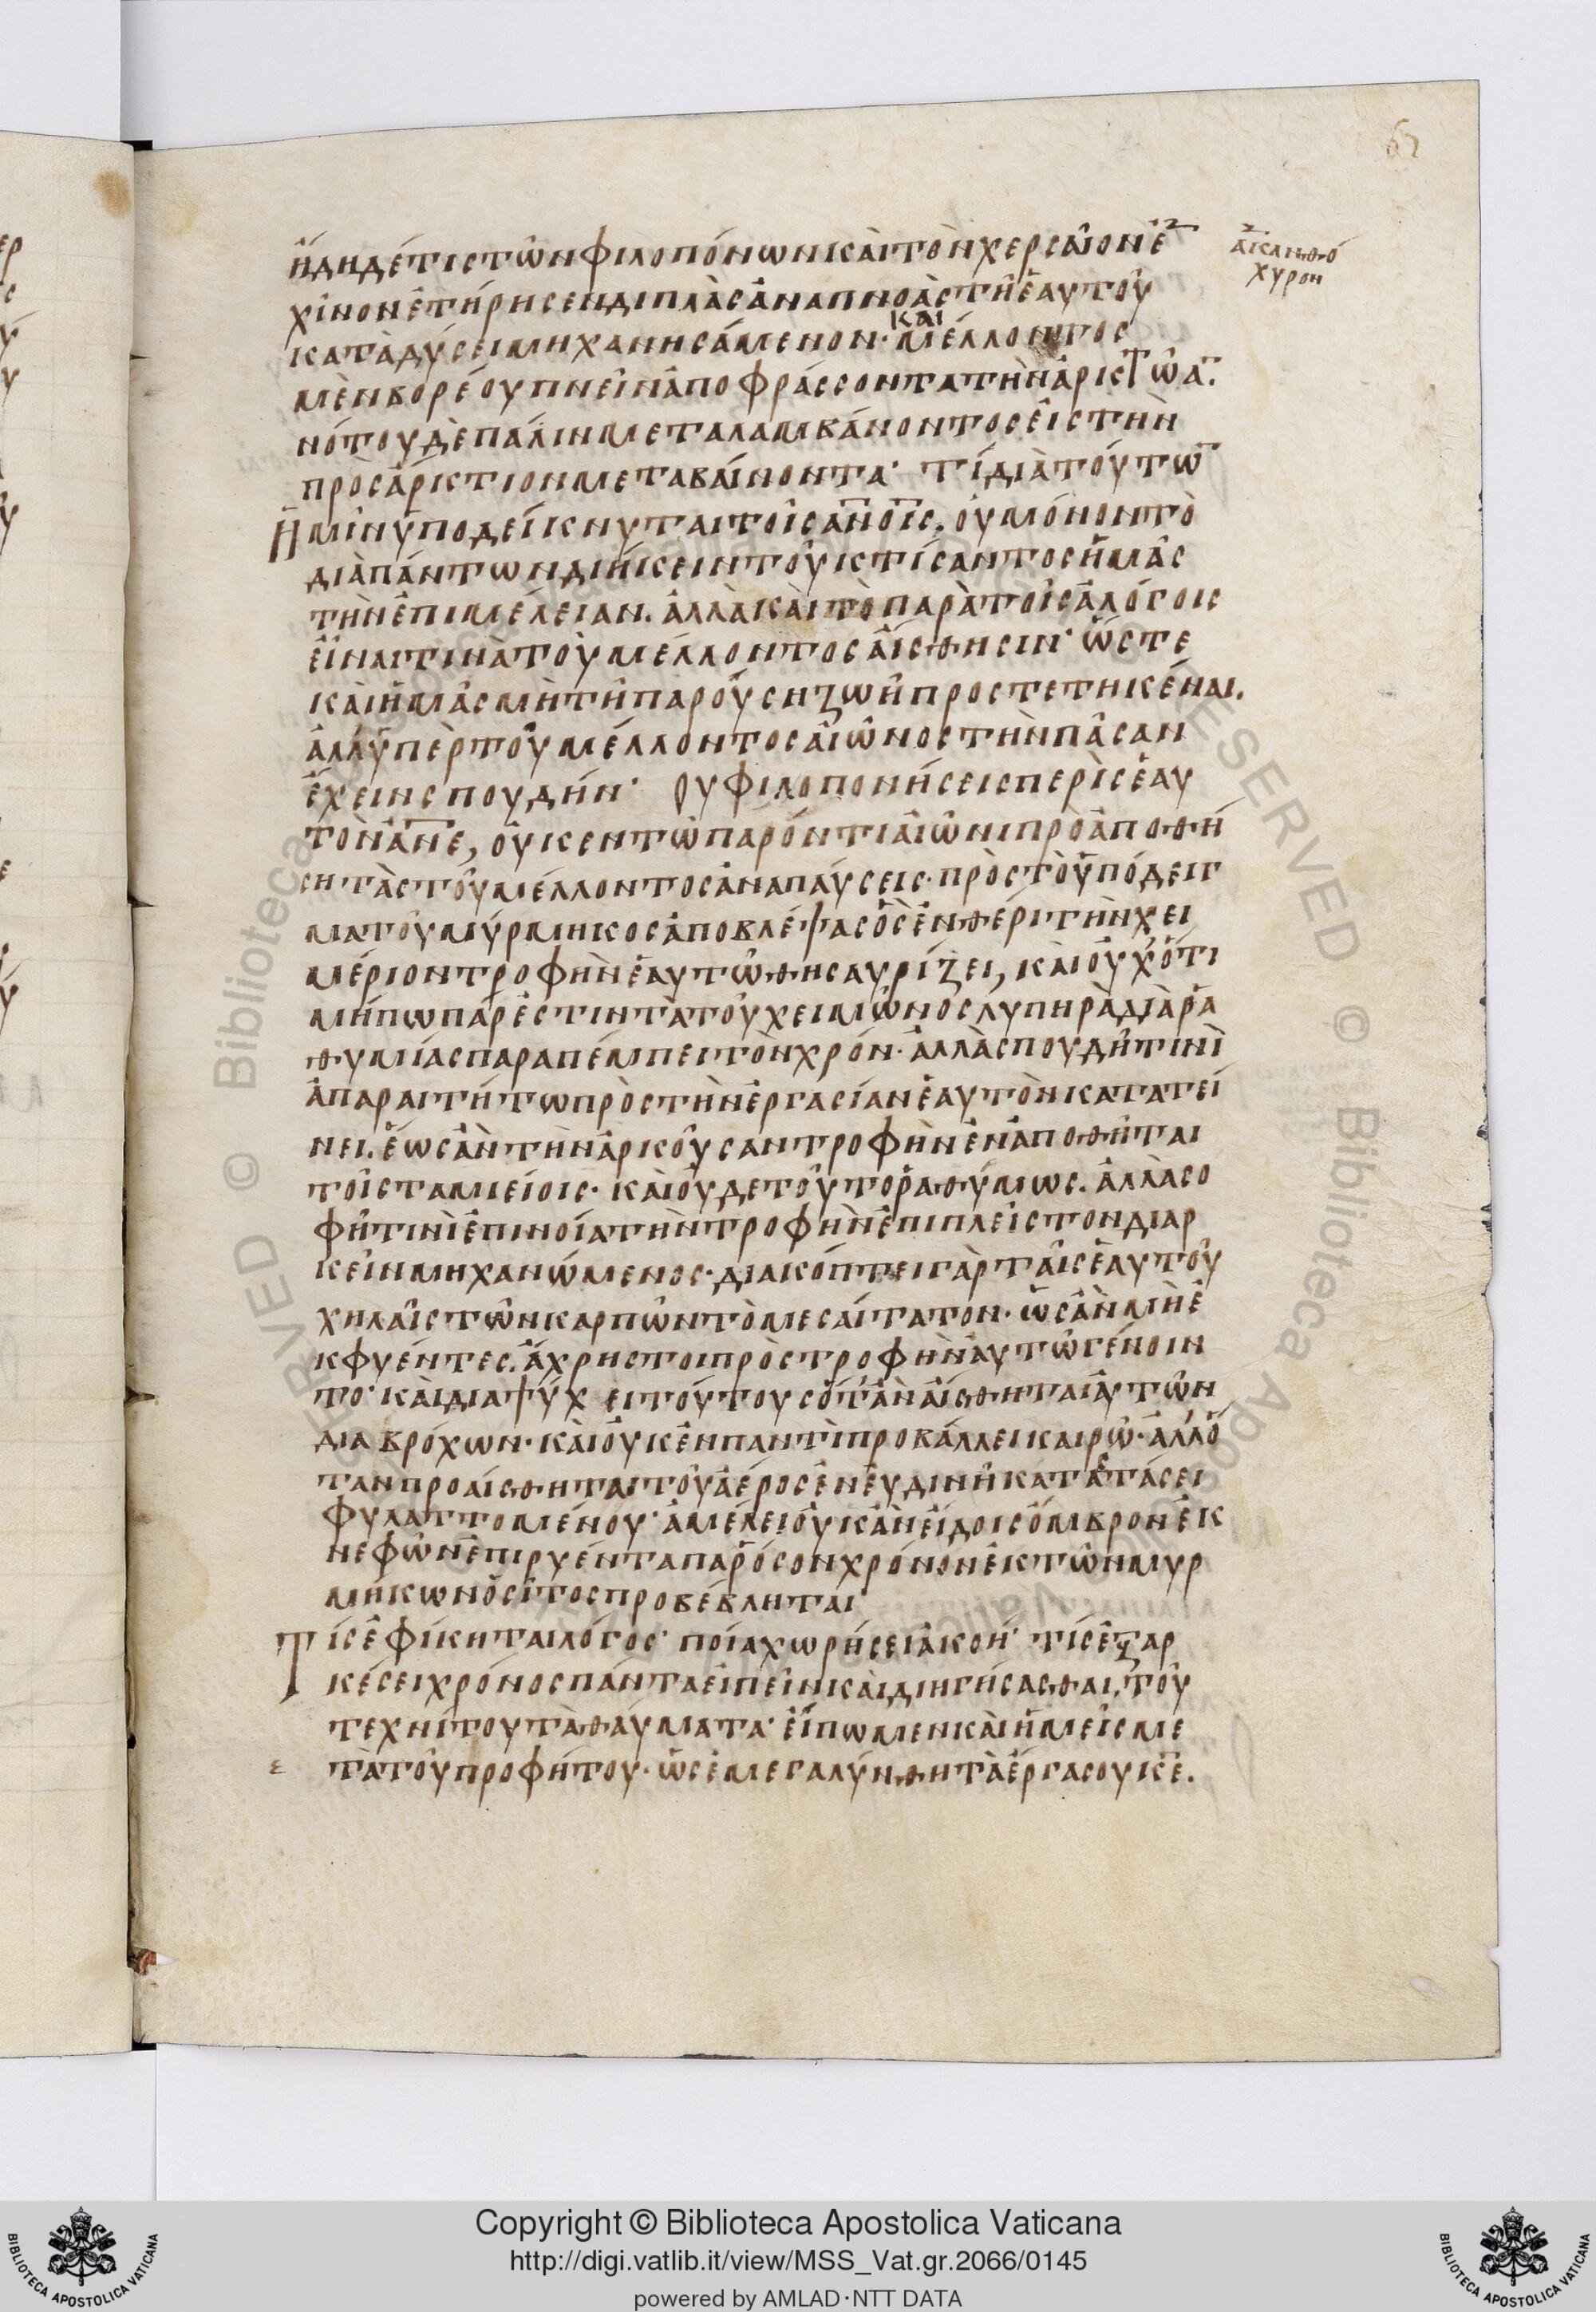 62
ἤδη δέ τις τῶν φιλοπόνων καὶ τὸν χερσαῖον ἐ
χῖνον ἐτήρησεν διπλὰς ἀναπνοὰς τῇ ἑαυτοῦ
καταδύσει μηχανησάμενον· καὶ μέλλοντος
μὲν βορέου πνεῖν ἀποφράσσοντα τὴν ἀρκτώα̅.
νότου δὲ πάλιν μεταλαμβάνοντος εἰς τὴν
προσάρκτιον μεταβαίνοντα· τί διὰ τούτω̅
ἡμῖν ὑποδείκνυται τοῖς α̅ν̅ο̅ι̅ς̅. οὐ μόνον τὸ
διὰ πάντων διήκειν τοῦ κτίσαντος ἡμᾶς
τὴν ἐπιμέλειαν. ἀλλὰ καὶ τὸ παρὰ τοῖς ἀλόγοις
εἶναι τινὰ τοῦ μέλλοντος αἴσθησιν· ὥστε
καὶ ἡμᾶς μὴ τῇ παρούσῃ ζωῇ προστετηκέναι.
ἀλλ' ὑπὲρ τοῦ μέλλοντος αἰῶνος τὴν πᾶσαν
ἔχειν σπουδήν· Οὐ φιλοπονήσεις περὶ σεαυ
τὸν α̅ν̅ε̅, οὐκ ἐν τῷ παρόντι αἰῶνι προαποθή
σῃ τὰς τοῦ μέλλοντος ἀναπαύσεις· πρὸς τὸ ὑπόδειγ
μα τοῦ μύρμηκος ἀποβλέψας ὃς ἐν θέρει τὴν χει
μέριον τροφὴν ἑαυτῷ θησαυρίζει, καὶ οὐχ ὅτι
μήπω πάρεστιν τὰ τοῦ χειμῶνος λυπηρὰ διὰ ρᾳ
θυμίας παραπέμπει τὸν χρόν· ἀλλὰ σπουδῇ τινὶ
ἀπαραιτήτω πρὸς τὴν ἐργασίαν ἑαυτὸν κατατεί
νει. ἕως ἂν τὴν ἀρκοῦσαν τροφὴν ἐναποθῆται
τοῖς ταμιείοις· καὶ οὐδὲ τοῦτο ραθύμως. ἀλλὰ σο
φῇ τινὶ ἐπινοία τὴν τροφὴν ἐπιπλεῖστον διαρ
κεῖν μηχανώμενος· διακόπτει γὰρ ταῖς ἑαυτοῦ
χηλαῖς τῶν καρπῶν τὸ μεσαίτατον· ὡς ἂν μὴ ἐ
κφυέντες. ἄχρηστοι πρὸς τροφὴν αὐτῷ γένοιν
το· καὶ διαψύχει τούτους ὅταν αἴσθηται αὐτῶν
διαβρόχων· καὶ οὐκ ἐν παντὶ προβάλλει καιρῷ· ἀλλ' ὅ
ταν προαίσθηται τοῦ ἀέρος ἐν εὐδινῇ καταστάσει
φυλαττομένου· ἀμέλει οὐκ ἂν εἴδοις ὄμβρον ἐκ
νεφῶν ἐπιρυέντα παρ' ὅσον χρόνον ἐκ τῶν μυρ
μήκων ὁ σῖτος προβέβληται·
Τίς ἐφίκηται λόγος· ποία χωρήσει ἀκοή· τίς ἐξαρ
κέσει χρόνος πάντα εἰπεῖν καὶ διηγήσασθαι, τοῦ
τεχνίτου τὰ θαύματα· εἴπωμεν καὶ ἡμεῖς με
τὰ τοῦ προφήτου· ὡς ἐμεγαλύνθη τὰ ἔργα σου κ̅ε̅.